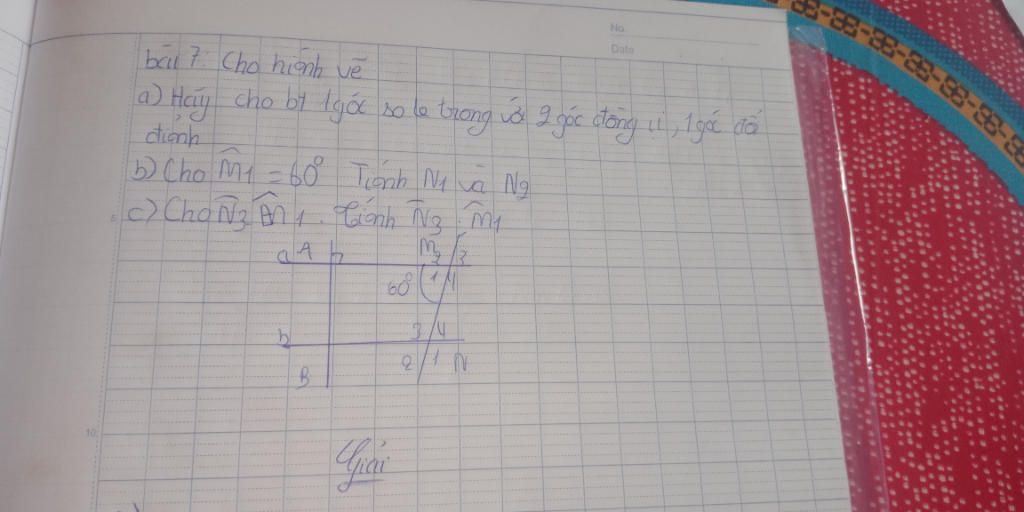 No.
Date
bài 7. Cho hình vẽ
a) Hãy cho bt 1 góc so le trong và 2 góc đồng vị, 1 góc đối
đỉnh
b) Cho M̂1 = 60° Tính N1 và N2
c) Cho N̂3 M̂1. Tính N̂3. M̂1
a A M
2 3
60° 1 4
b 3 4
2 1 N
B
10
Giải